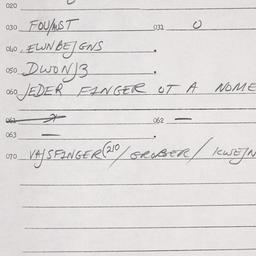 020
030 FOUMST 031 O
040 EWNBEJGNS .
050 DWONJ3
060 JEDER FINGER OT A NOME
061 062 —
063 — .
070 VAJSFINGER(210/ GROBER/ KWEJN